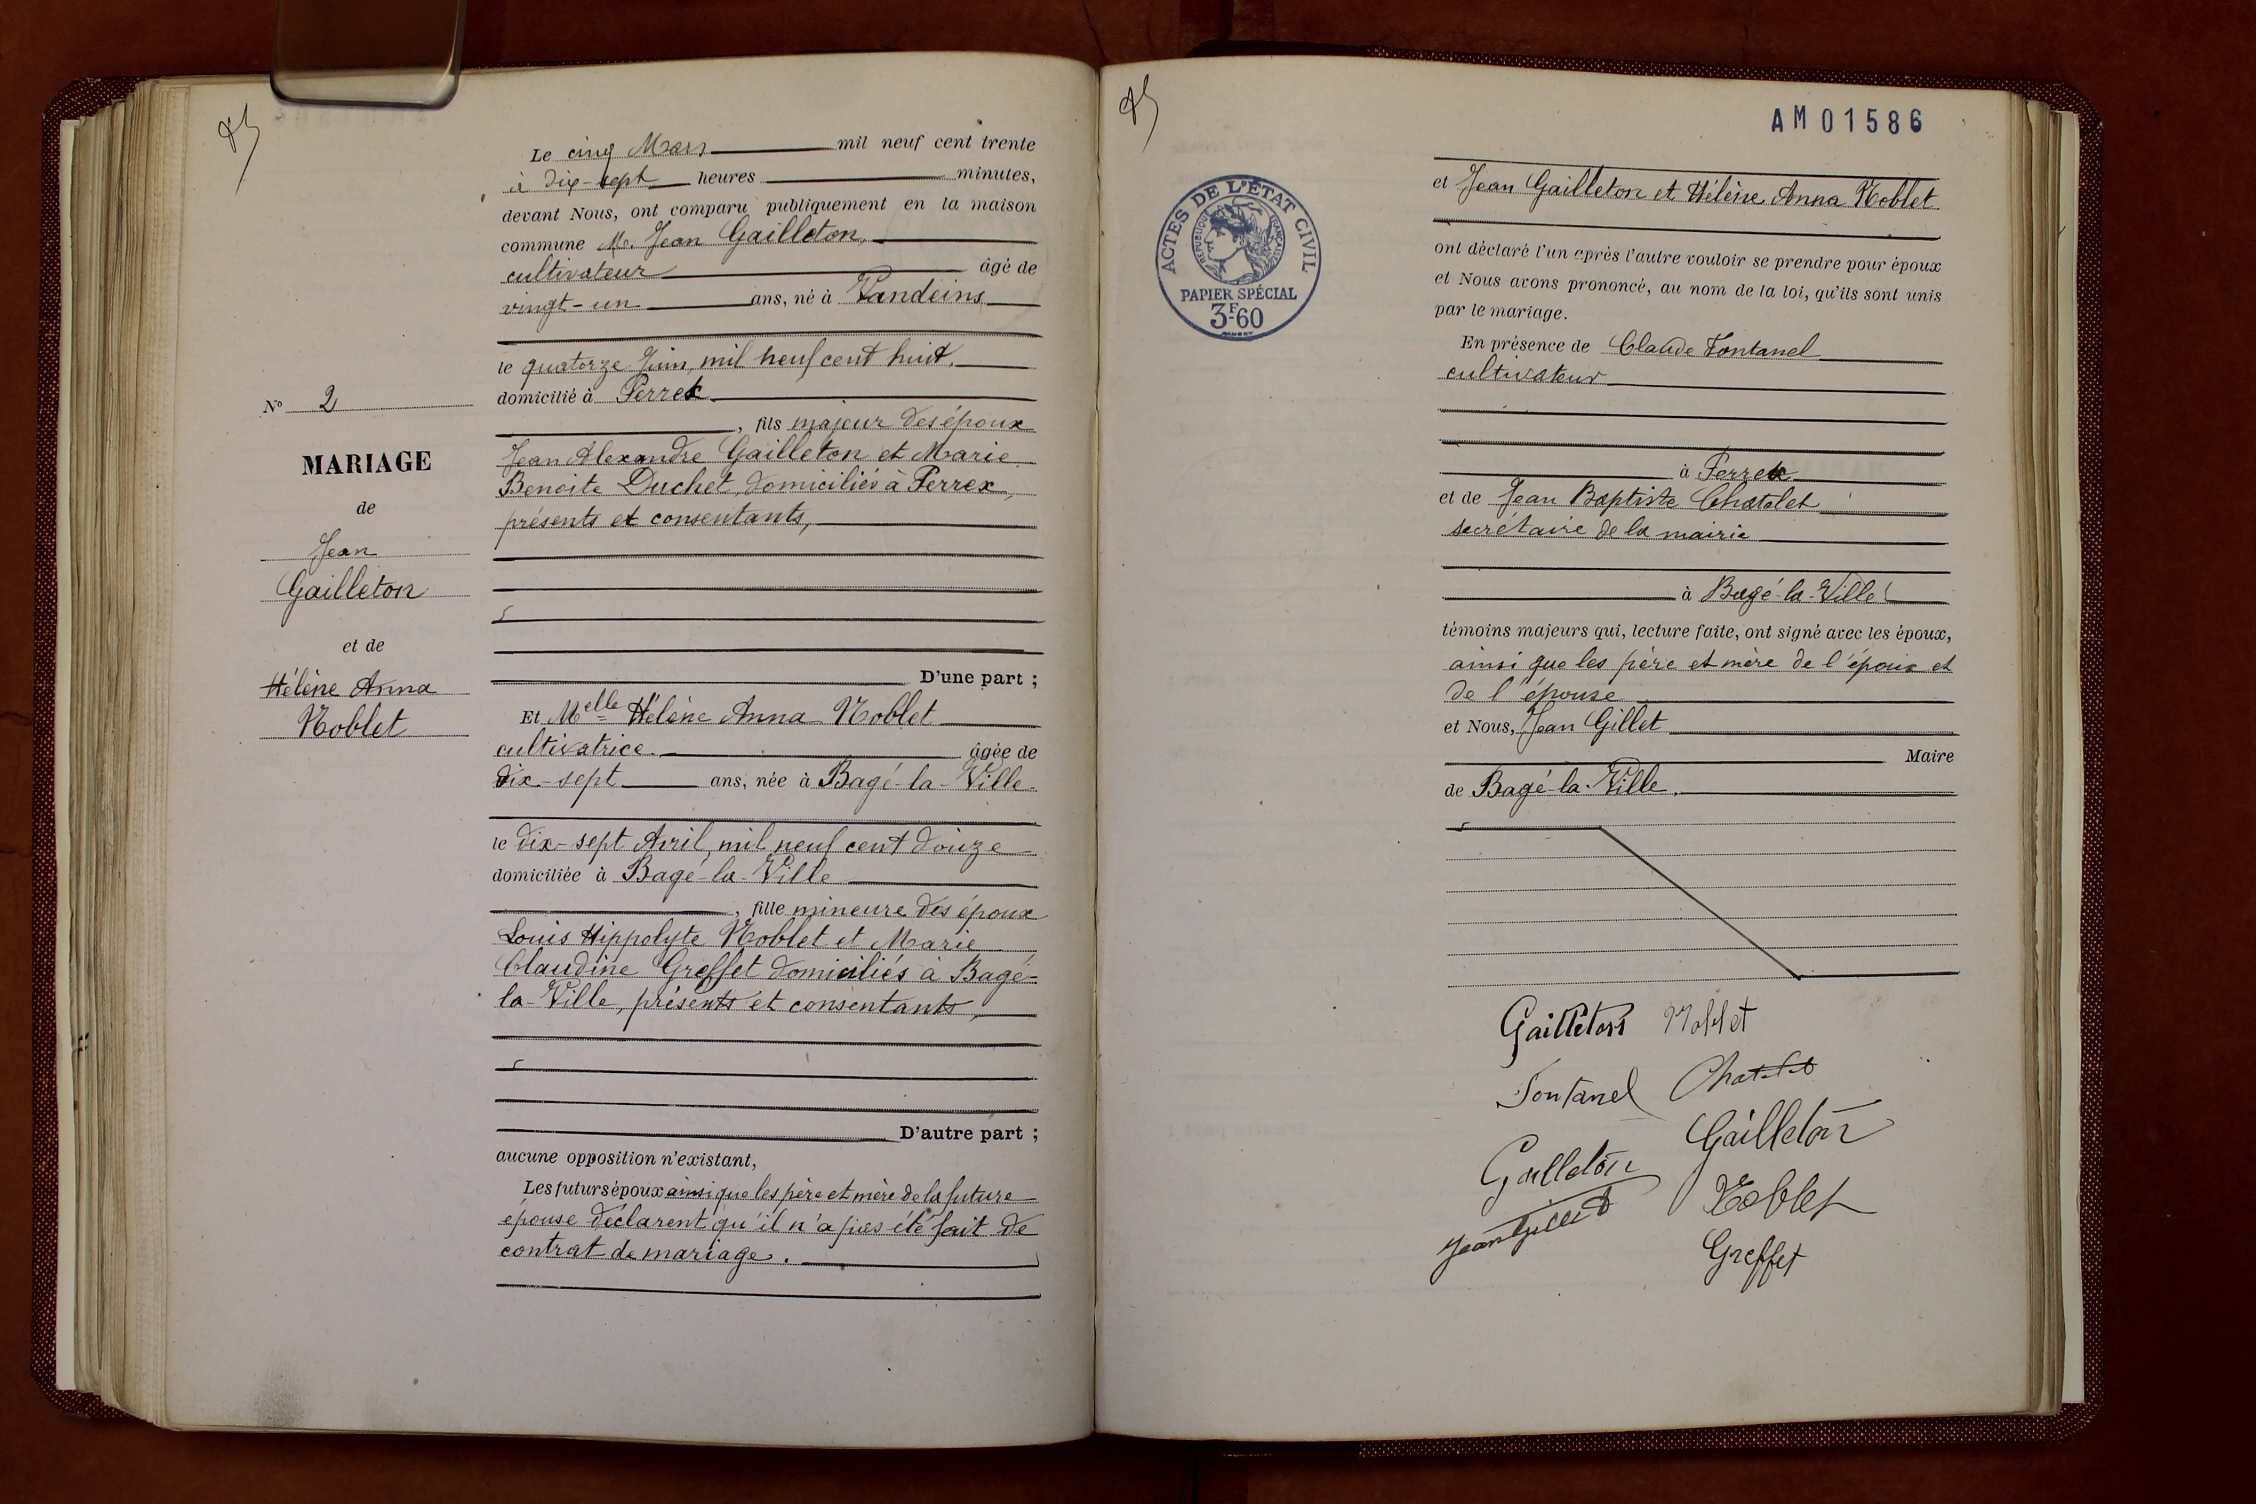 N° 2
MARIAGE
de
Jean
Gailleton
et de
Hélène Anna
Noblet
Le cinq Mars mil neuf cent trente
à dix-sept heures minutes,
devant Nous, ont comparu publiquement en la maison
commune M. Jean Gailleton,
cultivateur âgé de
vingt-un ans, né à Vandeins
le quatorze Juin, mil neuf cent huit,
domicilié à Perrex
, fils majeur des époux
Jean Alexandre Gailleton et Marie
Benoite Duchet, domiciliés à Perrex,
présents et consentants,
D'une part ;
Et Melle Hélène Anna Noblet
cultivatrice âgée de
dix-sept ans, née à Bagé-la-Ville
le dix-sept Avril, mil neuf cent douze
domiciliée à Bagé-la-Ville
, fille mineure des époux
Louis Hippolyte Noblet et Marie
Claudine Greffet domiciliés à Bagé-
la-Ville, présents et consentants,
D'autre part ;
aucune opposition n'existant,
Les futurs époux ainsi que les père et mère de la future
épouse déclarent qu'il n'a pas été fait de
contrat de mariage.
AM01586
ACTES DE L'ÉTAT CIVIL
RÉPUBLIQUE FRANÇAISE
PAPIER SPÉCIAL
3F60
et Jean Gailleton et Hélène Anna Noblet
ont déclaré l'un après l'autre vouloir se prendre pour époux
et Nous avons prononcé, au nom de la loi, qu'ils sont unis
par le mariage.
En présence de Claude Fontanel
cultivateur
à Perrex
et de Jean Baptiste Chatelet
secrétaire de la mairie
à Bagé-la-Ville
témoins majeurs qui, lecture faite, ont signé avec les époux,
ainsi que les père et mère de l'époux et
de l'épouse
et Nous, Jean Gillet
Maire
de Bagé-la-Ville.
Gailleton Noblet
Fontanel Chatelet
Gailleton
Gailleton
Noblet
Jean Gillet
Greffet